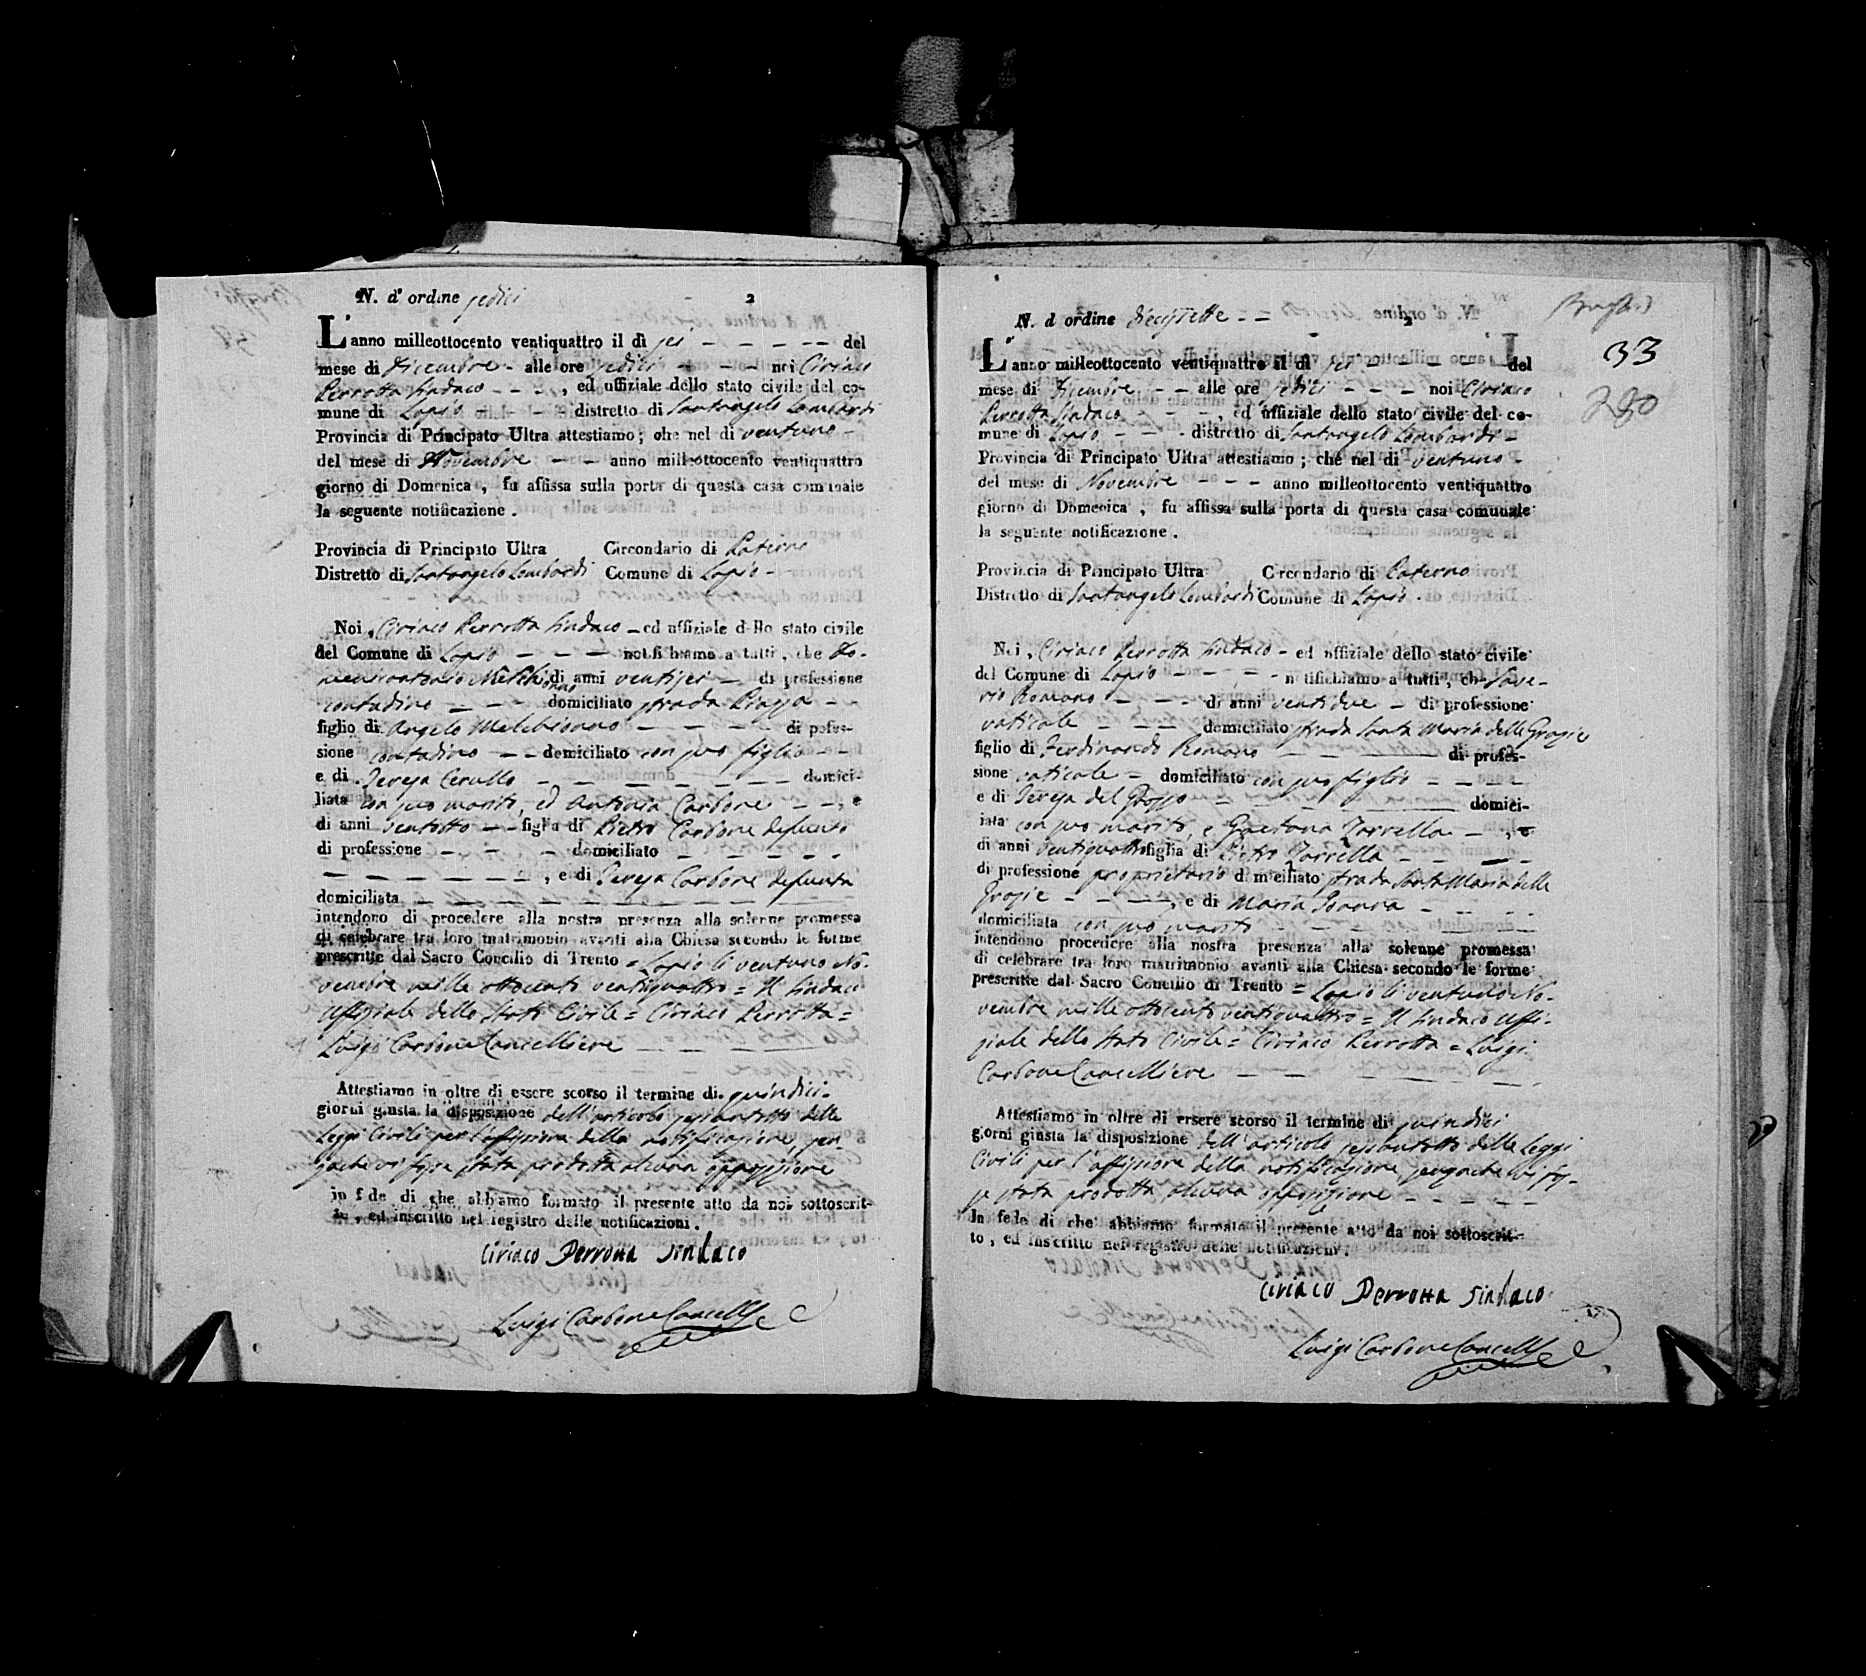 N. d'ordine sedici 2
L'anno milleottocento ventiquattro il dì sei - - - - - del
mese di Dicembre - alle ore sedici - - - - noi Ciriaco
Perrotta Sindaco - - - , ed uffiziale dello stato civile del co-
mune di Lapio - - - - distretto di Santangelo Lombardi
Provincia di Principato Ultra attestiamo; che nel di ventuno -
del mese di Novembre - - - anno milleottocento ventiquattro
giorno di Domenica , fu affissa sulla porta di questa casa comunale
la seguente notificazione .
Provincia di Principato Ultra Circondario di Paterno
Distretto di Santangelo Lombardi Comune di Lapio -
Noi , Ciriaco Perrotta Sindaco - ed uffiziale dello stato civile
del Comune di Lapio - - - - notifichiamo a tutti , che Do-
menicantonio Melchionno di anni ventisei - di professione
contadino - - - domiciliato strada Piazza - -
figlio di Angelo Melchionno - - - - di pofes-
sione contadino - - domiciliato con suo figlio - -
e di Teresa Cerullo - - - - - - - domici-
liata con suo marito, ed Antonia Carbone - - , e
di anni ventotto - - figlia di Pietro Carbone defunto
di professione - - - domiciliato - - - - - -
- - - - - - - , e di Teresa Carbone defunta
domiciliata - - - - - - - - - - -
intendono di procedere alla nostra presenza alla solenne promessa
di celebrare tra loro matrimonio avanti alla Chiesa secondo le forme
prescritte dal Sacro Concilio di Trento = Lapio li ventuno No-
vembre mille ottocento ventiquattro = Il Sindaco
Uffiziale dello Stato Civile = Ciriaco Perrotta =
Luigi Carbone Cancelliere - - - -
Attestiamo in oltre di essere scorso il termine di quindici -
giorni giusta la disposizione dell'articolo sessantotto delle
Leggi Civili per l'affissione della notificazione, sen-
zacche vi fosse stata prodotta alcuna opposizione
in fede di che abbiamo formato il presente atto da noi sottoscrit-
to , ed inscritto nel registro delle notificazioni .
Ciriaco Perrotta Sindaco
Luigi Carbone Cancelle
N. d ordine diecisette - - 2
33
280
L'anno milleottocento ventiquattro il dì sei - - - - - del
mese di Dicembre - - alle ore sedici - - - - noi Ciriaco
Perrotta Sindaco - - - - , ed uffiziale dello stato civile del co-
mune di Lapio - - - - distretto di Santangelo Lombardi -
Provincia di Principato Ultra attestiamo ; che nel di ventuno -
del mese di Novembre - - - - anno milleottocento ventiquattro
giorno di Domenica , fu affissa sulla porta di questa casa comunale
la seguente notificazione .
Provincia di Principato Ultra Circondario di Paterno
Distretto di Santangelo Lombardi Comune di Lapio .
Noi , Ciriaco Perrotta Sindaco - ed uffiziale dello stato civile
del Comune di Lapio - - - - - notifichiamo a tutti , che Save-
rio Romano - - - - di anni ventidue - di professione
vaticale - - - - domiciliato strada Santa Maria delle Grazie
figlio di Ferdinando Romano - - - - di profes-
sione vaticale - domiciliato con suo figlio - - - -
e di Teresa del Grosso - - - - domici-
iata con suo marito, e Gaetana Zarrella - - , e
di anni ventiquattro figlia di Pietro Zarrella - - - -
di professione proprietario domiciliato strada Santa Maria delle
Grazie - - - - , e di Maria Ioanna - - - -
domiciliata con suo marito - - - - -
intendono procedere alla nostra presenza alla solenne promessa
di celebrare tra loro matrimonio avanti alla Chiesa secondo le forme
prescritte dal Sacro Concilio di Trento = Lapio li ventuno No-
vembre mille ottocento ventiquattro = Il Sindaco Uffi-
ziale dello Stato Civile = Ciriaco Perrotta = Luigi
Carbone Cancelliere - - - - -
Attestiamo in oltre di essere scorso il termine di quindici
giorni giusta la disposizione dell'articolo sessantotto delle Leggi
Civili per l'affissione della notificazione, senzacche vi fos-
se stata prodotta alcuna opposizione - - - - -
In fede di che abbiamo formato il presente atto da noi sottoscrit-
to , ed inscritto nel registro delle notificazioni .
Ciriaco Perrotta Sindaco
Luigi Carbone Cancelle